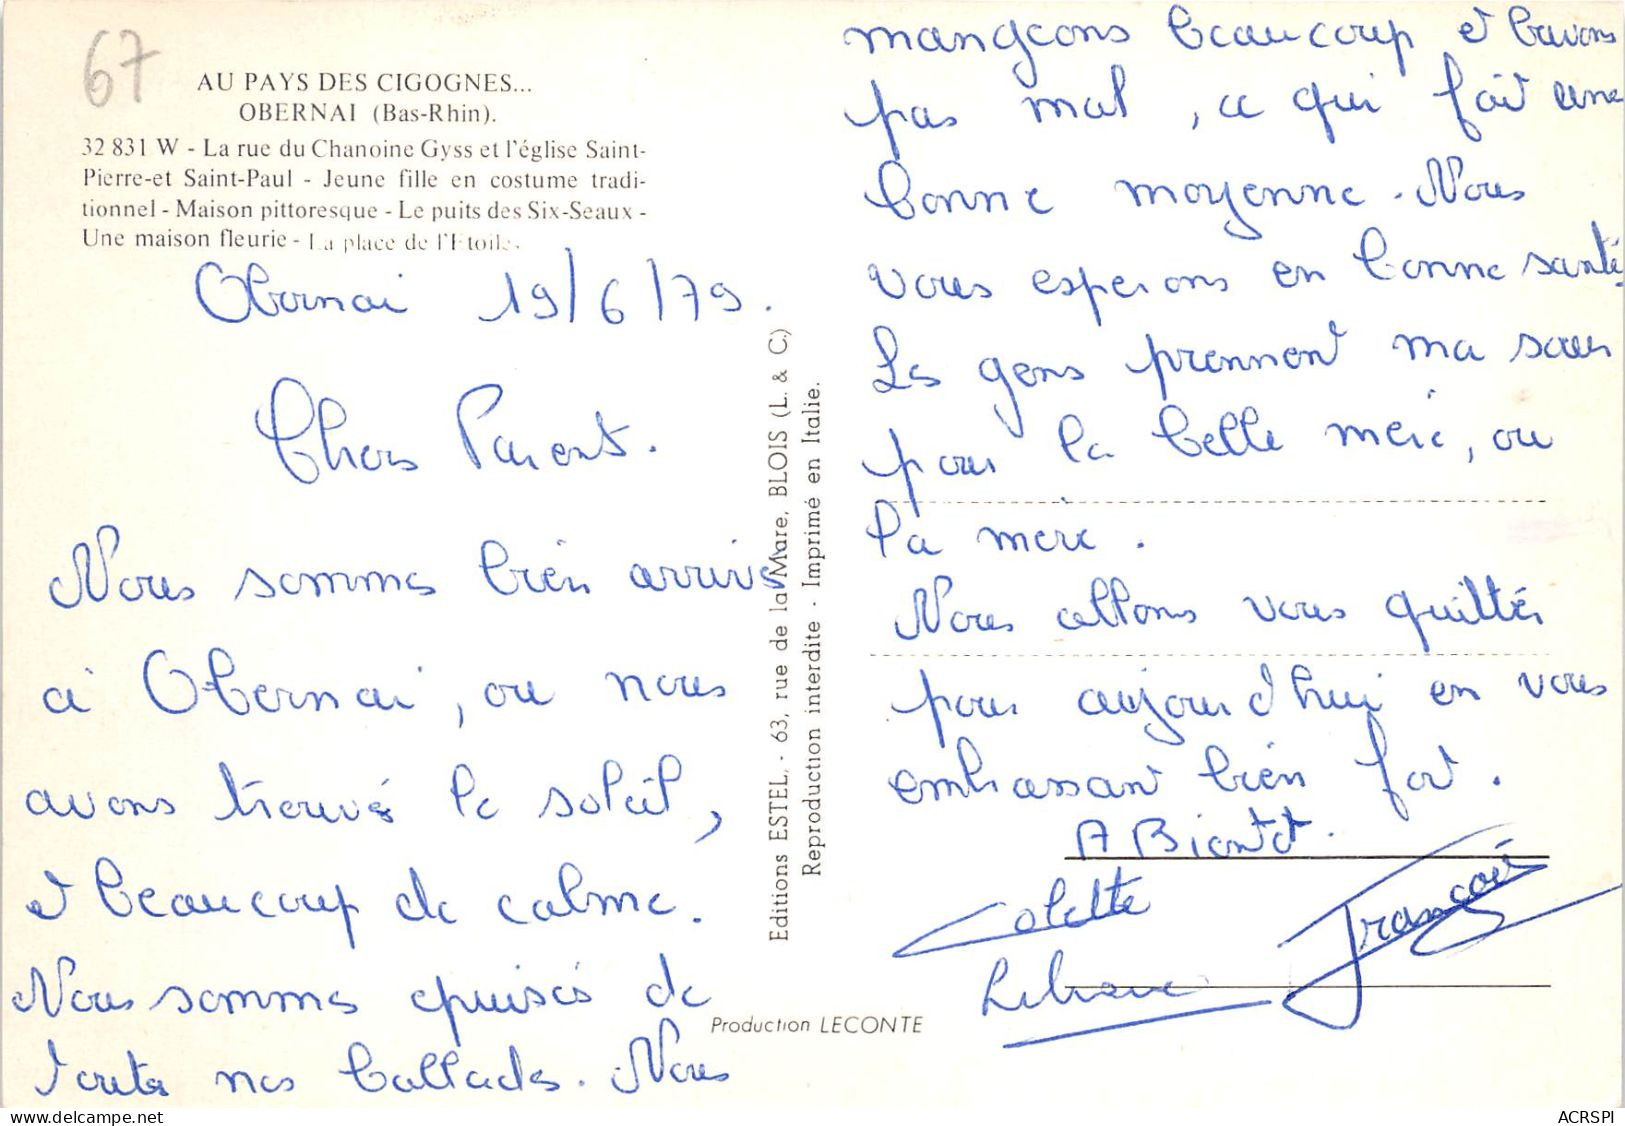 67
AU PAYS DES CIGOGNES...
OBERNAI (Bas-Rhin).
32 831 W - La rue du Chanoine Gyss et l'église Saint-
Pierre-et Saint-Paul - Jeune fille en costume tradi-
tionnel - Maison pittoresque - Le puits des Six-Seaux -
Une maison fleurie - La place de l'Etoile.
Obernai 19/6/79.
Chers Parents.
Nous sommes bien arrivés
à Obernai, ou nous
avons trouvés le soleil,
et beaucoup de calme.
Nous sommes epuisés de
toutes nos ballades. Nous
mangeons beaucoup et buvons
pas mal, ce qui fait une
bonne moyenne. Nous
vous esperons en bonne santé.
Les gens prennent ma sœur
pour la belle mère, ou
la mère.
Nous allons vous quittés
pour aujourd'hui en vous
embrassant bien fort.
A Bientot.
Colette
François
Liliane
Editions ESTEL, - 63, rue de la Mare, BLOIS (L. & C.)
Reproduction interdite - Imprimé en Italie.
Production LECONTE
delcampe.net
ACRSPI